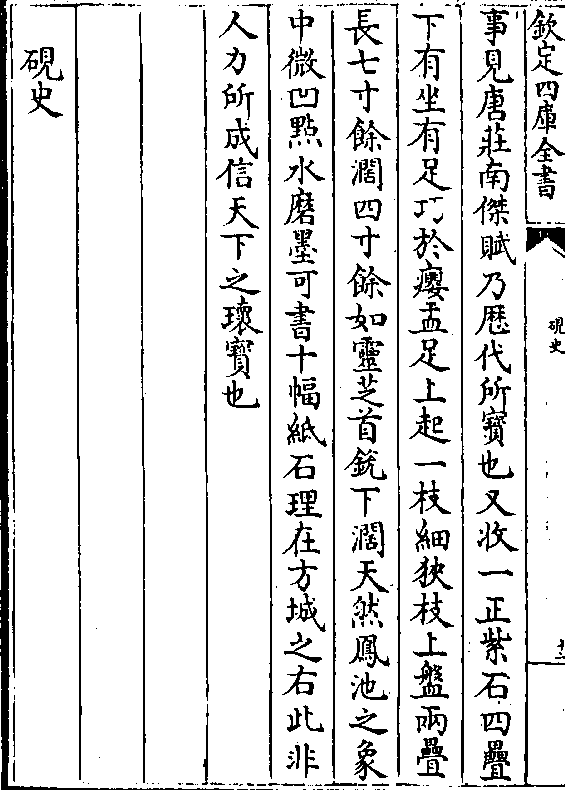 欽定四庫全書
硯史
十二
事見唐莊南傑賦乃歴代所寳也又收一正紫石四疊
下有坐有足巧於癭盂足上起一枝細狹枝上盤兩疊
長七寸餘濶四寸餘如靈芝首銳下濶天然鳳池之象
中微凹點水磨墨可書十幅紙石理在方城之右此非
人力所成信天下之瓌寳也
硯史